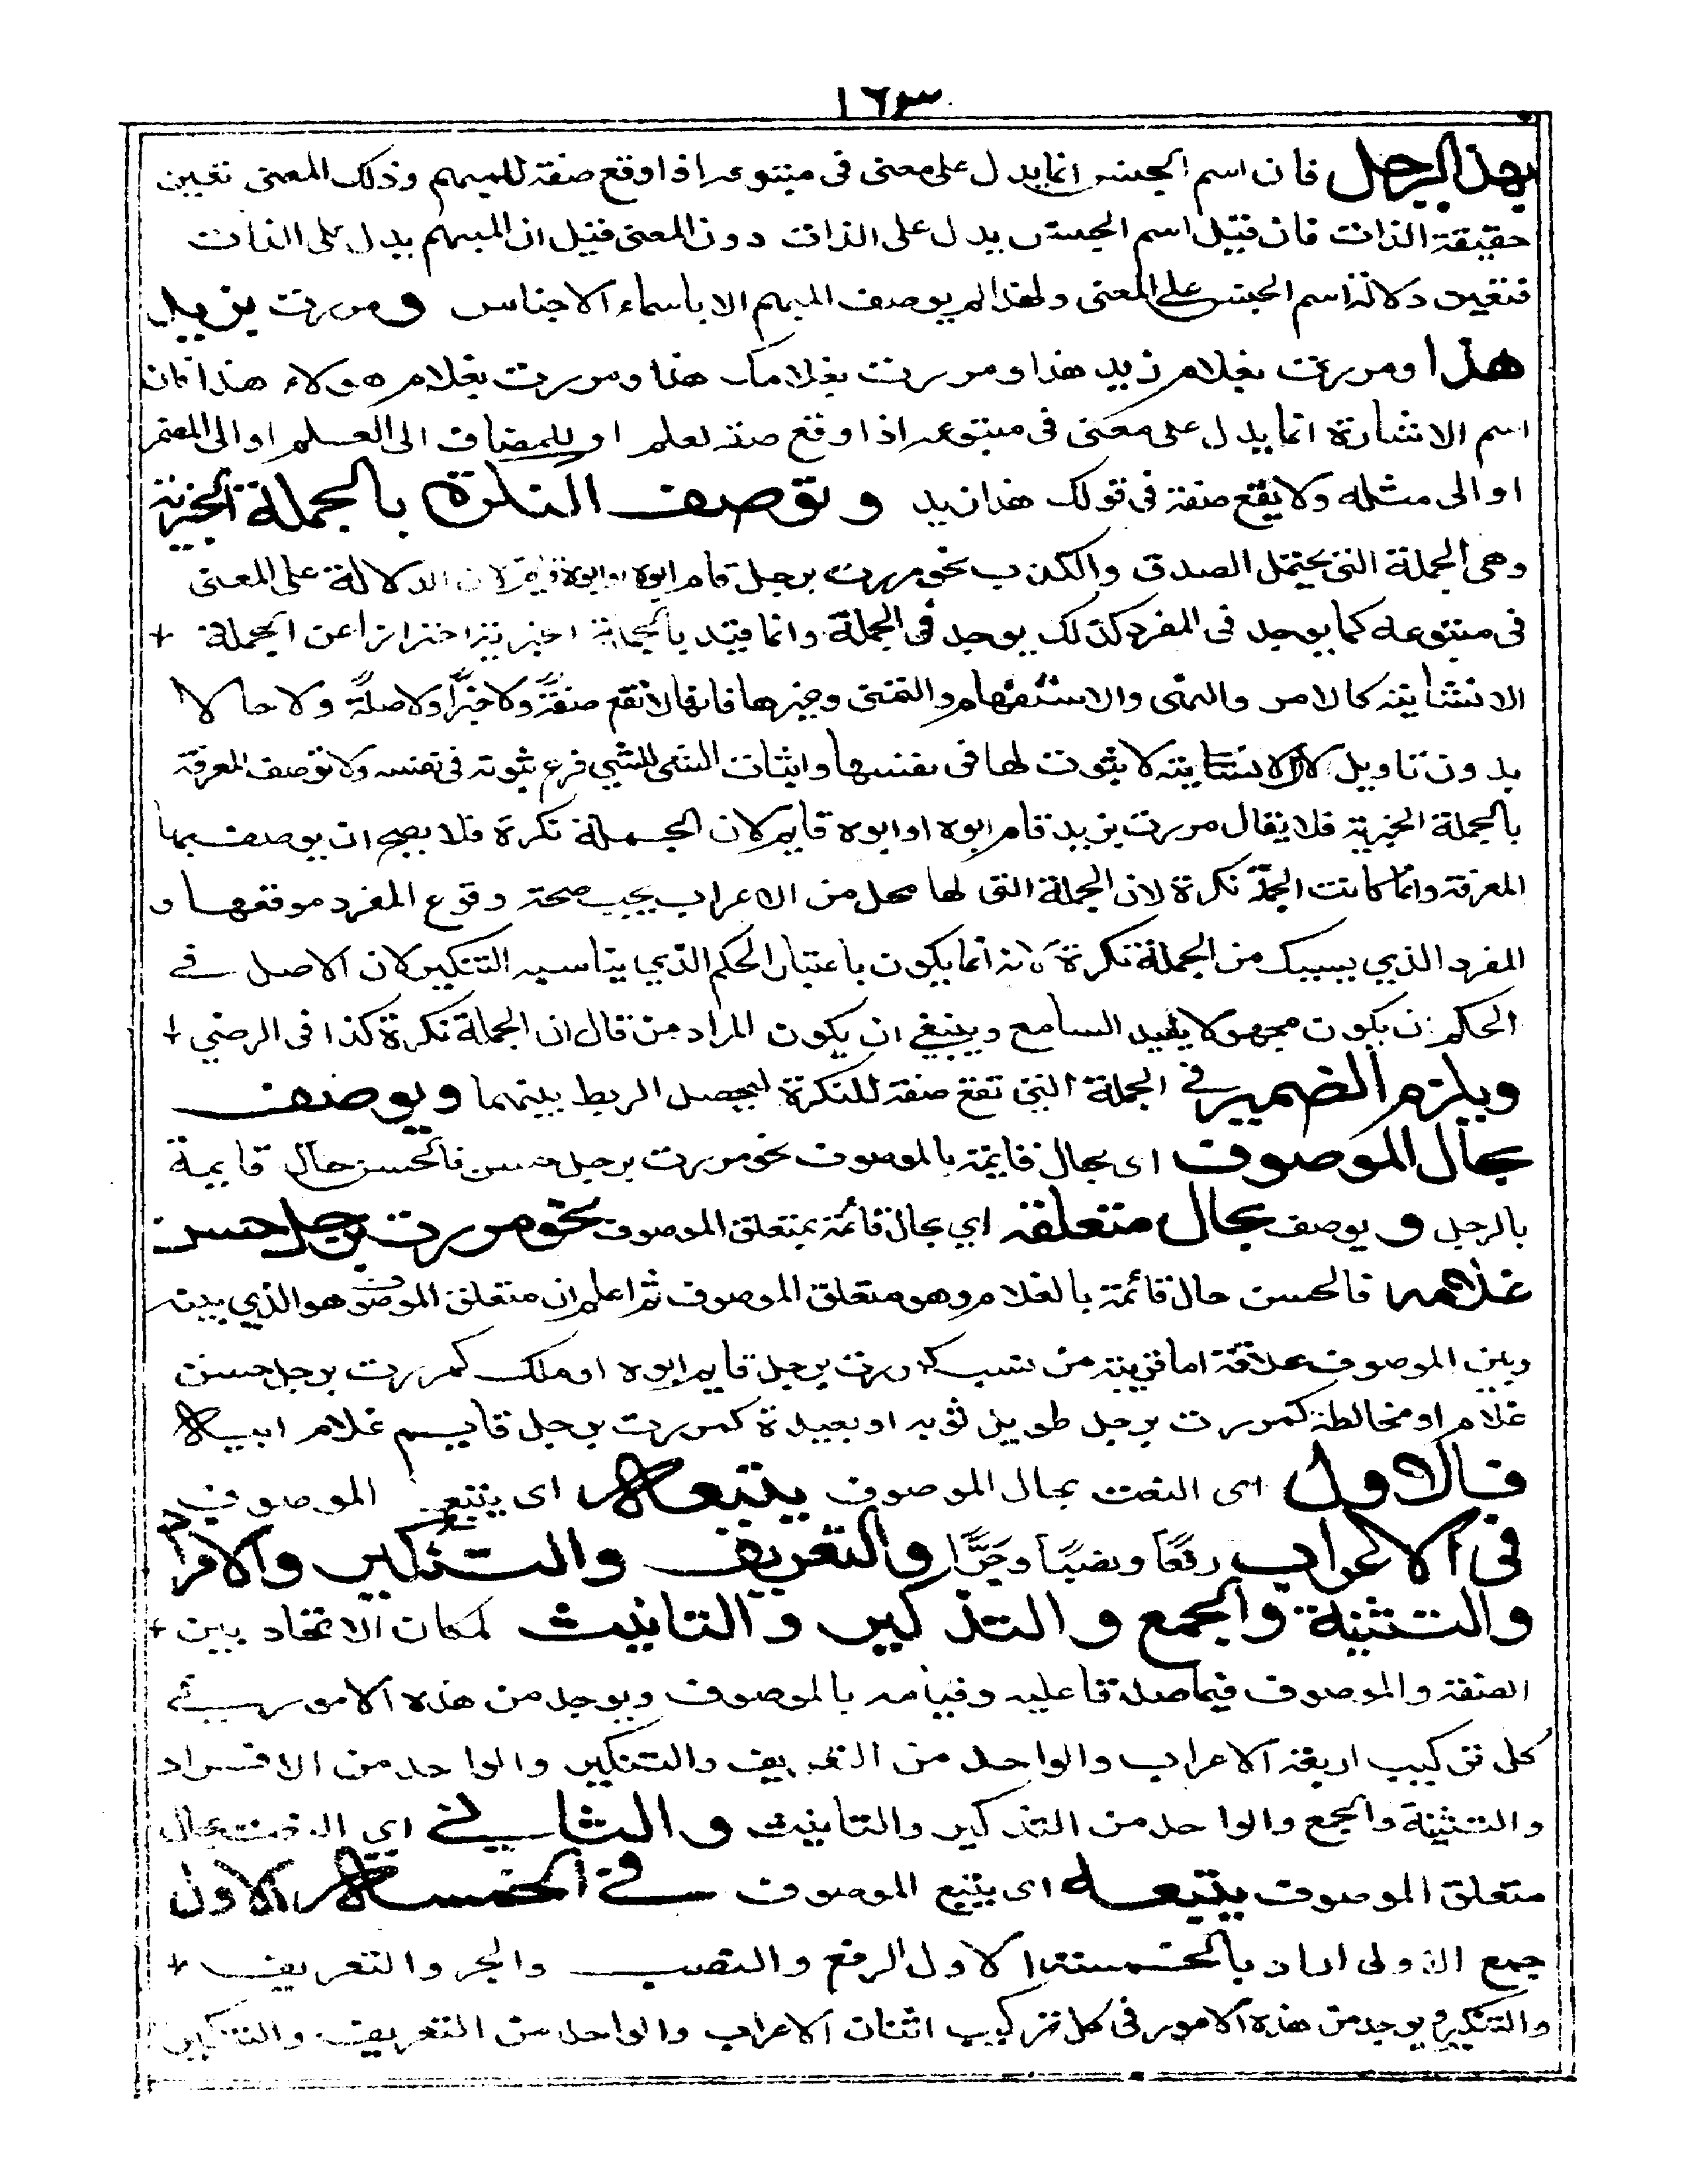 ١٦٣
بهذا الرجل فان اسم الجنس انما يدل على معنى فى متبوعه اذا وقع صفة للمبهم وذلك المعنى تعين
حقيقة الذات فان قيل اسم الجنس يدل على الذات دون المعنى قيل ان المبهم يدل على الذات
فتعين دلالة اسم الجنس على المعنى ولهذا لم يوصف المبهم الا باسماء الاجناس ومررت بزيد
هذا ومررت بغلام زيد هذا ومررت بغلامك هذا ومررت بغلام هولاء هذا فان
اسم الاشارة انما يدل على معنى فى متبوعه اذا وقع صفة لعلم او للمضاف الى العلم او الى المضمر
او الى مثله ولا يقع صفة فى قولك هذا زيد وتوصف النكرة بالجملة الخبرية
وهى الجملة التى يحتمل الصدق والكذب نحو مررت برجل قام ابوه او ابوه قايم لان الدلالة على المعنى
فى متبوعه كما يوجد فى المفرد كذلك يوجد فى الجملة وانما قيد بالجملة الخبرية احترازا عن الجملة
الانشائية كالامر والنهى والاستفهام والتمنى وغيرها فانها لا تقع صفةً ولا خبرًا ولا صلةً ولا حالا
بدون تاويل لان الانشائية لا ثبوت لها فى نفسها واثبات الشى للشى فرع ثبوته فى نفسه ولا توصف المعرفة
بالجملة الخبرية فلا يقال مررت بزيد قام ابوه او ابوه قايم لان الجملة نكرة فلا يصح ان يوصف بها
المعرفة وانما كانت الجملة نكرة لان الجملة التى لها محل من الاعراب يجب صحة وقوع المفرد موقعها و
المفرد الذي يسبك من الجملة نكرة لانه انما يكون باعتبار الحكم الذي يناسبه التنكير لان الاصل في
الحكم ان يكون مجهولا يفيد السامع وينبغي ان يكون المراد من قال ان الجملة نكرة كذا فى الرضي
ويلزم الضمير في الجملة التى تقع صفة للنكرة ليحصل الربط بينهما ويوصف
بحال الموصوف اى بحال قايمة بالموصوف نحو مررت برجل حسن فالحسن حال قايمة
بالرجل و يوصف بحال متعلقه اي بحال قائمة بمتعلق الموصوف نحو مررت برجل حسن
غلامه فالحسن حال قائمة بالغلام وهو متعلق الموصوف ثم اعلم ان متعلق الموصوف هو الذي بينه
وبين الموصوف علاقة اما قريبة من نسب كمررت برجل قايم ابوه او ملك كمررت برجل حسن
غلام او مخالطة كمررت برجل طويل ثوبه او بعيدة كمررت برجل قايم غلام ابيه
فالاول اى النعت بحال الموصوف يتبعه اى يتبع الموصوف
فى الاعراب رفعًا ونصبًا وجرًّا والتعريف والتنكير والافراد
والتثنية والجمع والتذكير والتانيث لمكان الاتحاد بين
الصفة والموصوف فيما صدقا عليه وقيامه بالموصوف ويوجد من هذه الامور في
كل تركيب اربعة الاعراب والواحد من التعريف والتنكير والواحد من الافراد
والتثنية والجمع والواحد من التذكير والتانيث والثاني اي النعت بحال
متعلق الموصوف يتبعه اى يتبع الموصوف في الخمسة الاول
جمع الاولى اراد بالخمسة الاول الرفع والنصب والجر والتعريف
والتنكير ويوجد من هذه الامور فى كل تركيب اثنان الاعراب والواحد من التعريف والتنكير